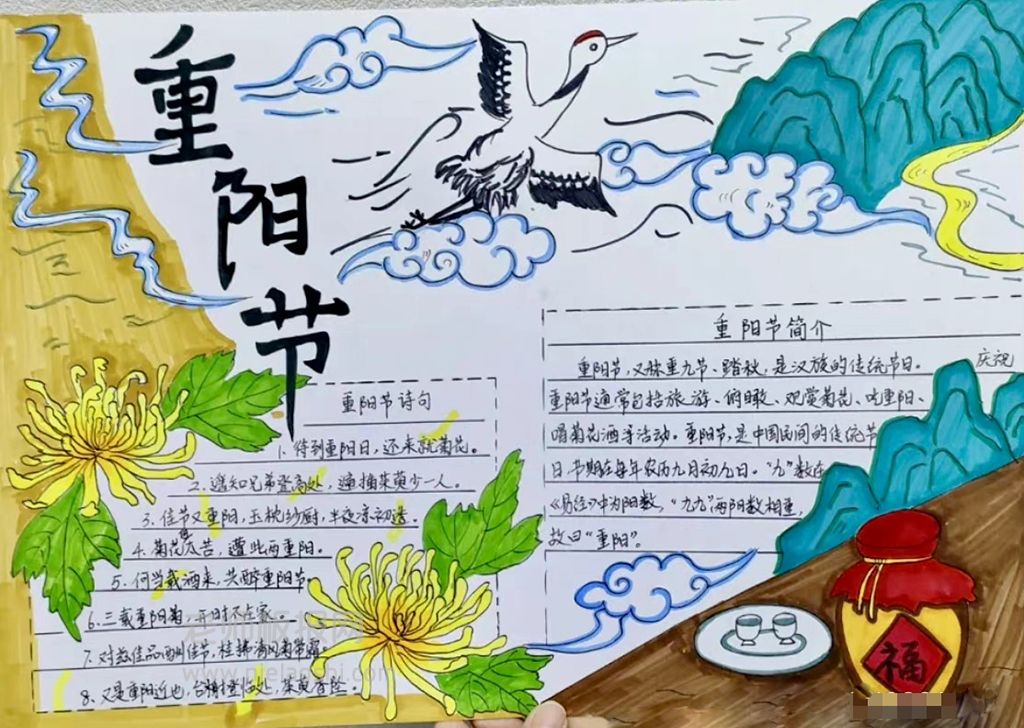 重阳节
重阳节诗句
1. 待到重阳日，还来就菊花。
2. 遥知兄弟登高处，遍插茱萸少一人。
3. 佳节又重阳，玉枕纱厨，半夜凉初透。
4. 菊花何太苦，遭此两重阳。
5. 何当载酒来，共醉重阳节。
6. 三载重阳菊，开时不在家。
7. 对兹佳品酬佳节，桂拂清风菊带霜。
8. 又是重阳近也，台榭登临处，茱萸香坠。
重阳节简介
重阳节，又称重九节、踏秋，是汉族的传统节日。 庆祝
重阳节通常包括旅游、俯瞰、观赏菊花、吃重阳、
喝菊花酒等活动。重阳节，是中国民间的传统节
日，节期在每年农历九月初九日。“九”数在
《易经》中为阳数，“九九”两阳数相重，
故曰“重阳”。
福